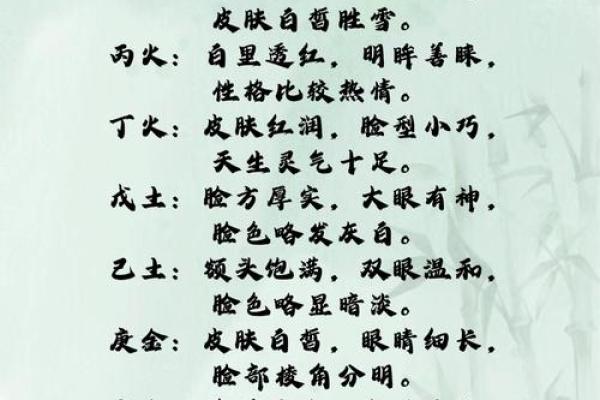 皮肤白皙胜雪。
丙火：白里透红，明眸善睐，
性格比较热情。
丁火：皮肤红润，脸型小巧，
天生灵气十足。
戊土：脸方厚实，大眼有神，
脸色咯发灰白。
己土：额头饱满，双眼温和，
脸色咯显暗淡。
庚金：皮肤白皙，眼睛细长，
脸部棱角分明。